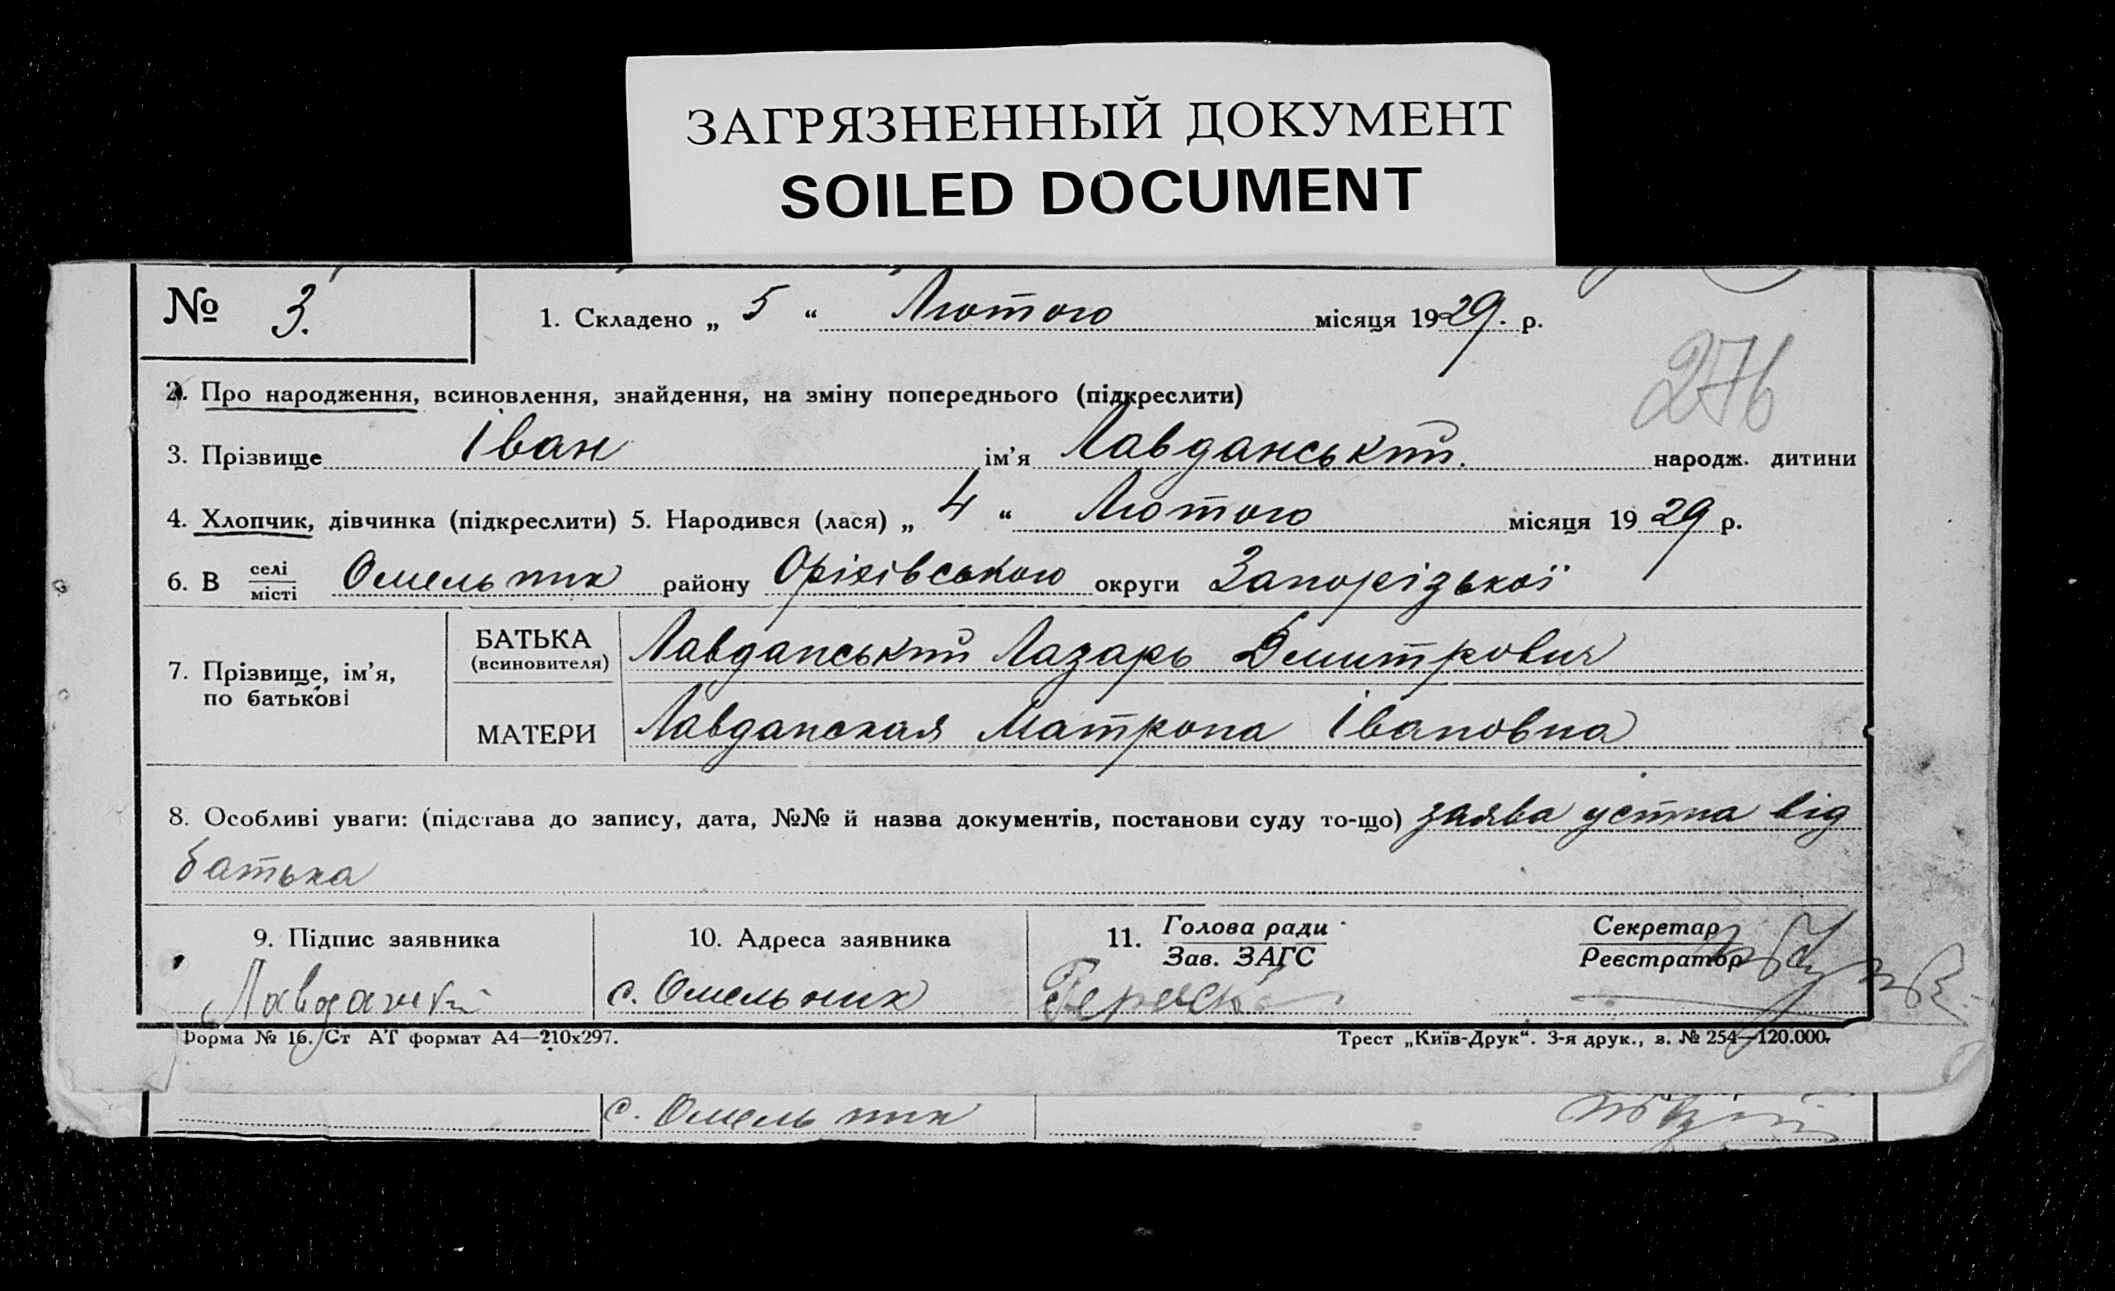 ЗАГРЯЗНЕННЫЙ ДОКУМЕНТ
SOILED DOCUMENT
№ 3. 1. Складено „ 5 “ Лютого місяця 1929. р.
276
2. Про народження, всиновлення, знайдення, на зміну попереднього (підкреслити)
3. Прізвище Іван ім’я Лавданський. народж. дитини
4. Хлопчик, дівчинка (підкреслити) 5. Народився (лася) „ 4 “ Лютого місяця 19 29 р.
6. В селі місті Омельник району Оріхівського округи Запорізької
7. Прізвище, ім’я, по батькові
БАТЬКА (всиновителя) Лавданський Лазарь Дмитрович
МАТЕРИ Лавданская Матрона Івановна
8. Особливі уваги: (підстава до запису, дата, №№ й назва документів, постанови суду то-що) заява устна від
батька
9. Підпис заявника 10. Адреса заявника 11. Голова ради Зав. ЗАГС Секретар Реєстратор
с. Омельник
Форма № 16. Ст АТ формат А4—210х297. Трест „Київ-Друк“. 3-я друк., з. № 254—120.000.
с. Омельник